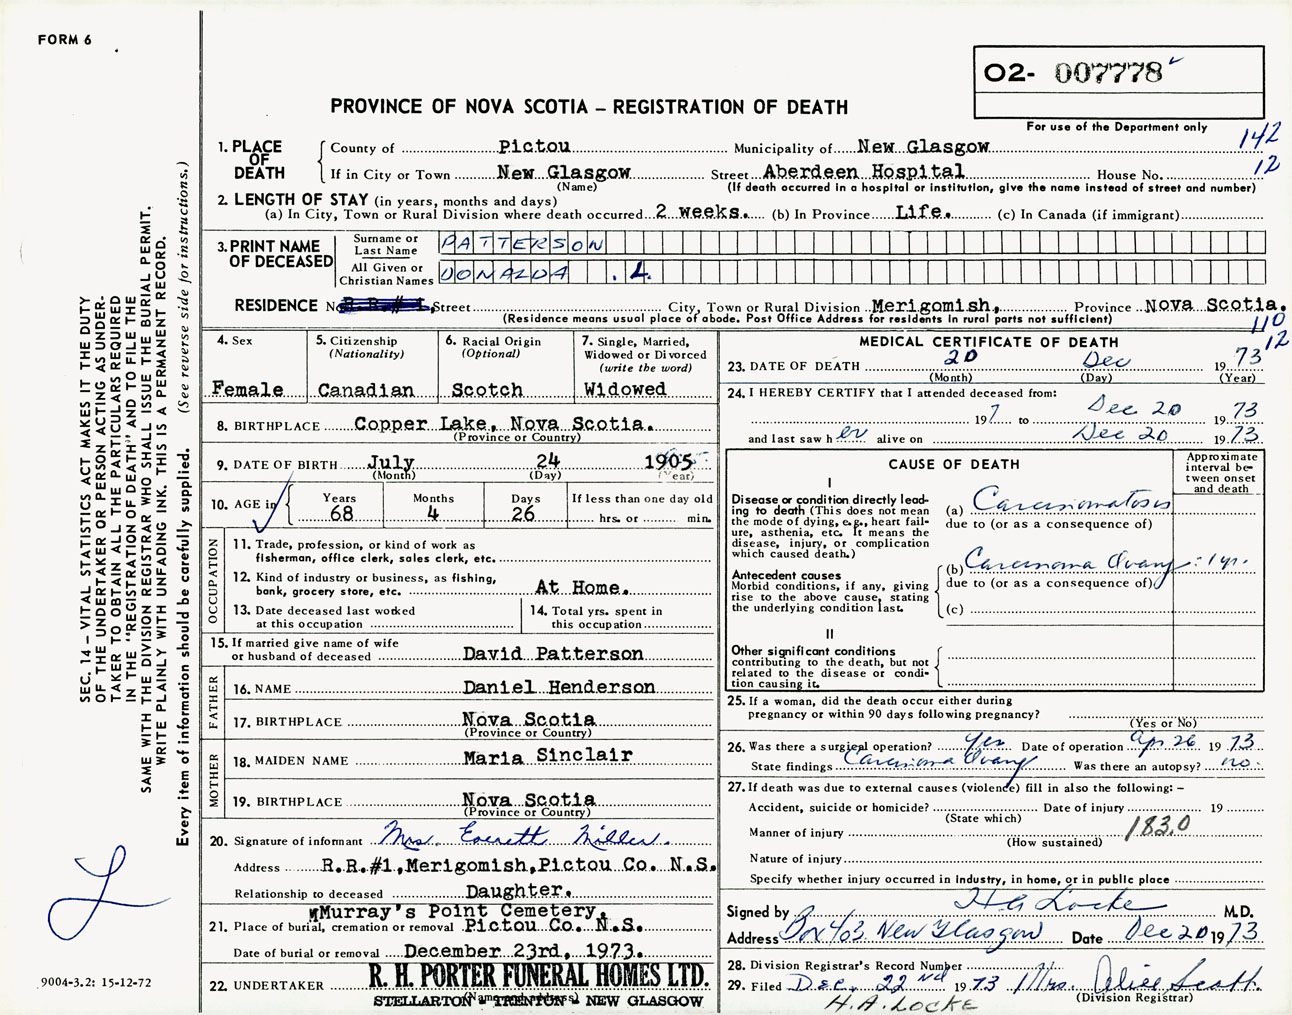 FORM 6
O2- 007778
PROVINCE OF NOVA SCOTIA – REGISTRATION OF DEATH
For use of the Department only
142
12
1. PLACE OF DEATH
County of Pictou Municipality of New Glasgow
If in City or Town New Glasgow Street Aberdeen Hospital House No.
(Name) (If death occurred in a hospital or institution, give the name instead of street and number)
2. LENGTH OF STAY (in years, months and days)
(a) In City, Town or Rural Division where death occurred 2 weeks. (b) In Province Life. (c) In Canada (if immigrant)
3. PRINT NAME OF DECEASED
Surname or Last Name PATTERSON
All Given or Christian Names DONALDA . L.
RESIDENCE No R.R.#1, Street City, Town or Rural Division Merigomish, Province Nova Scotia.
(Residence means usual place of abode. Post Office Address for residents in rural parts not sufficient)
110
12
4. Sex
Female
5. Citizenship (Nationality)
Canadian
6. Racial Origin (Optional)
Scotch
7. Single, Married, Widowed or Divorced (write the word)
Widowed
8. BIRTHPLACE Copper Lake, Nova Scotia.
(Province or Country)
9. DATE OF BIRTH July 24 1905
(Month) (Day) (Year)
10. AGE in
Years Months Days If less than one day old
68 4 26 hrs. or min.
OCCUPATION
11. Trade, profession, or kind of work as
fisherman, office clerk, sales clerk, etc.
12. Kind of industry or business, as fishing,
bank, grocery store, etc. At Home.
13. Date deceased last worked
at this occupation
14. Total yrs. spent in
this occupation
15. If married give name of wife
or husband of deceased David Patterson
FATHER
16. NAME Daniel Henderson
17. BIRTHPLACE Nova Scotia
(Province or Country)
MOTHER
18. MAIDEN NAME Maria Sinclair
19. BIRTHPLACE Nova Scotia
(Province or Country)
20. Signature of informant Mrs. Everett Miller.
Address R.R.#1,Merigomish,Pictou Co. N.S.
Relationship to deceased Daughter.
Murray's Point Cemetery,
21. Place of burial, cremation or removal Pictou Co. N.S.
Date of burial or removal December 23rd, 1973.
22. UNDERTAKER R. H. PORTER FUNERAL HOMES LTD.
(Name and address)
STELLARTON - TRENTON - NEW GLASGOW
MEDICAL CERTIFICATE OF DEATH
23. DATE OF DEATH 20 Dec 1973
(Month) (Day) (Year)
24. I HEREBY CERTIFY that I attended deceased from:
197 to Dec 20 1973
and last saw her alive on Dec 20 1973
CAUSE OF DEATH
Approximate interval be-tween onset and death
I
Disease or condition directly lead-
ing to death (This does not mean
the mode of dying, e.g., heart fail-
ure, asthenia, etc. It means the
disease, injury, or complication
which caused death.)
(a) Carcinomatosis
due to (or as a consequence of)
Antecedent causes
Morbid conditions, if any, giving
rise to the above cause, stating
the underlying condition last.
(b) Carcinoma Ovary 1 yr.
due to (or as a consequence of)
(c)
II
Other significant conditions
contributing to the death, but not
related to the disease or condi-
tion causing it.
25. If a woman, did the death occur either during
pregnancy or within 90 days following pregnancy?
(Yes or No)
26. Was there a surgical operation? Yes Date of operation Apr 26 1973
State findings Carcinoma Ovary Was there an autopsy? no.
27. If death was due to external causes (violence) fill in also the following: –
Accident, suicide or homicide? Date of injury 19
(State which)
Manner of injury 183.0
(How sustained)
Nature of injury
Specify whether injury occurred in Industry, in home, or in public place
Signed by H A Locke M.D.
Address Box 403 New Glasgow Date Dec 20 1973
28. Division Registrar's Record Number
29. Filed Dec. 22nd 1973 Mrs. Alice Scott.
(Division Registrar)
H.A. LOCKE
SEC. 14 – VITAL STATISTICS ACT MAKES IT THE DUTY
OF THE UNDERTAKER OR PERSON ACTING AS UNDER-
TAKER TO OBTAIN ALL THE PARTICULARS REQUIRED
IN THE "REGISTRATION OF DEATH" AND TO FILE THE
SAME WITH THE DIVISION REGISTRAR WHO SHALL ISSUE THE BURIAL PERMIT.
WRITE PLAINLY WITH UNFADING INK. THIS IS A PERMANENT RECORD.
Every item of information should be carefully supplied. (See reverse side for instructions.)
9004-3.2: 15-12-72